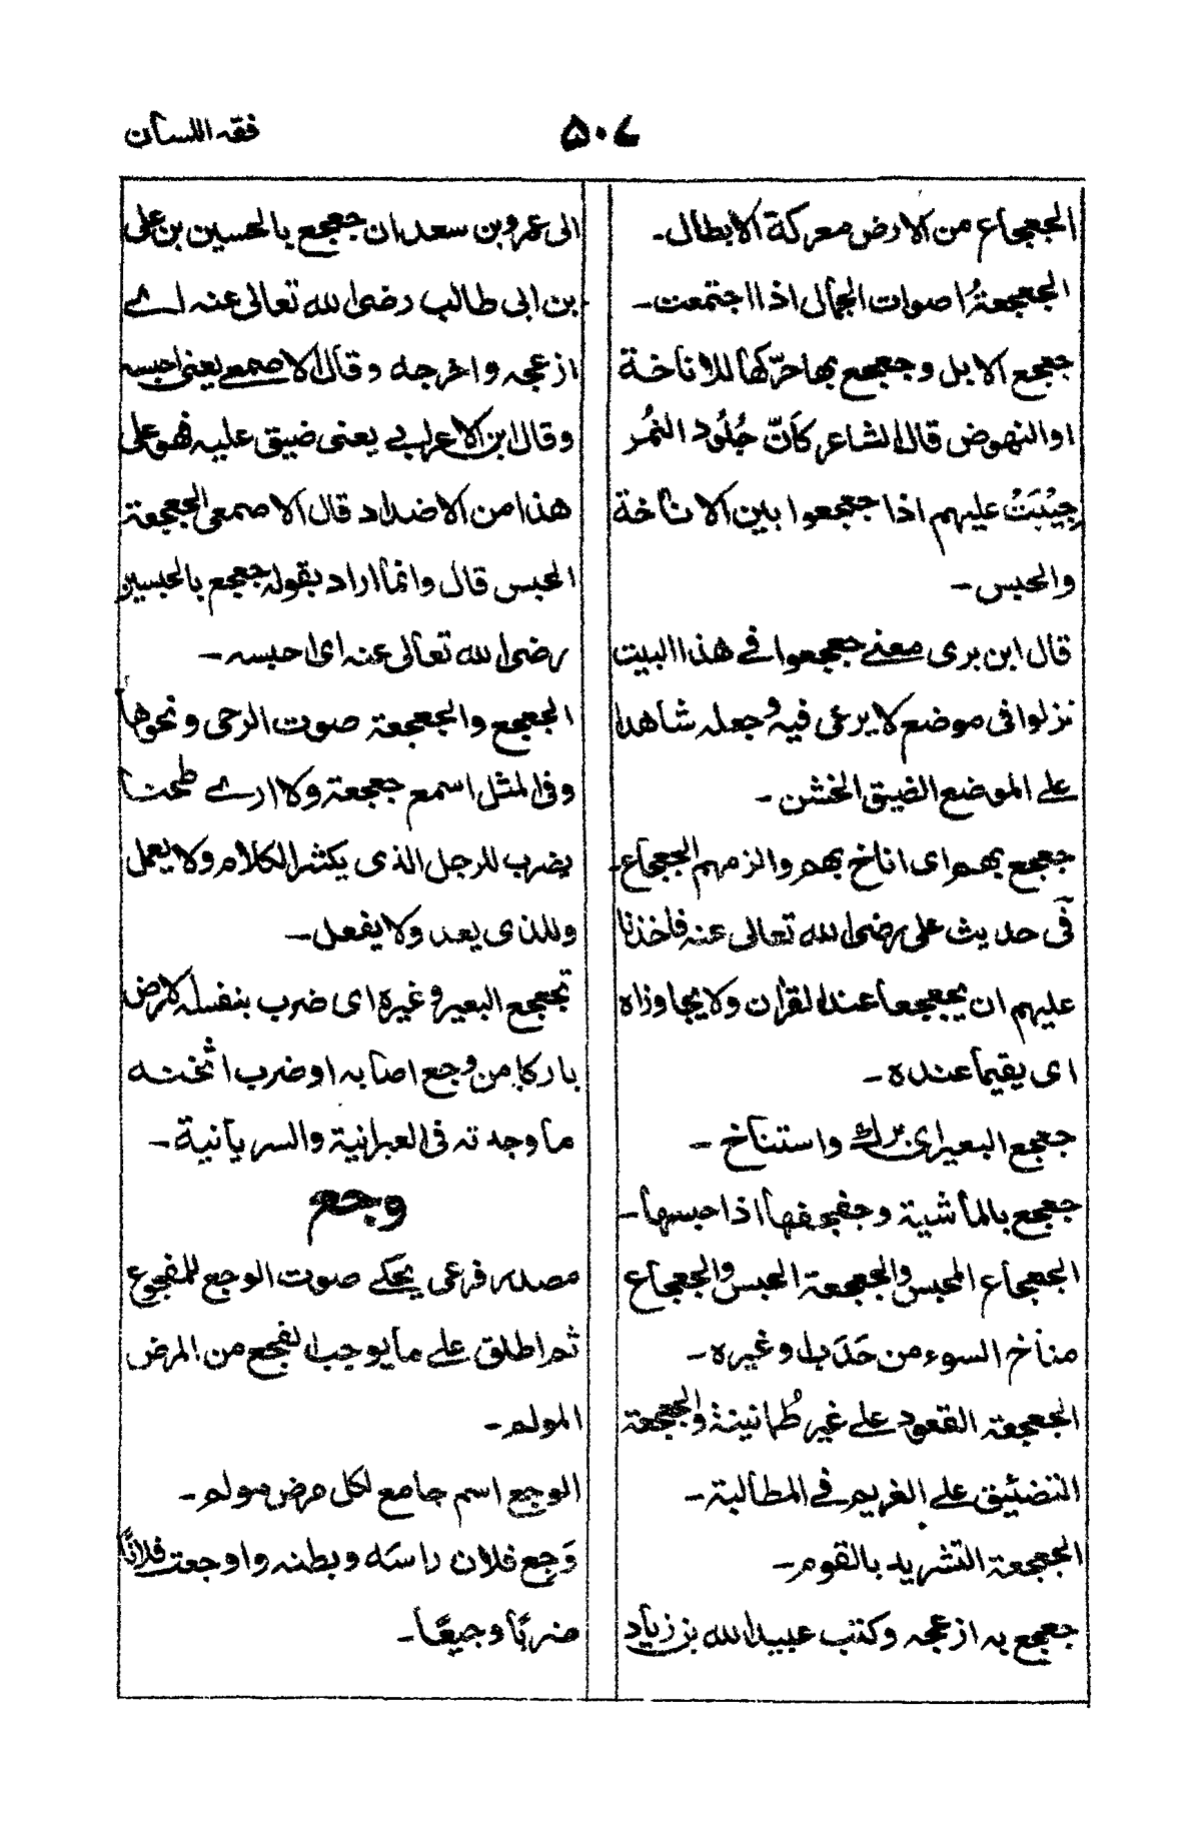 فقه اللسان
۵۰۷
الجعجاع من الارض معركة الابطال۔
الجعجعةُ اصوات الجمال اذا اجتمعت۔
جعجع الابل وجعجع بها حرّكها للاناخة
او النهوض قال الشاعر كَأنّ جُلُود النمُر
جِيْبَتْ عليهم اذا جعجعوا بين الاناخة
والحبس۔
قال ابن بری معنے جعجعوا فے هذا البيت
نزلوا فی موضع لا يرعی فيه وجعله شاهدا
علے الموضع الضيق الخشن۔
جعجع بهم ای اناخ بهم والزمهم الجعجاع۔
فی حديث علی رضی الله تعالی عنه فاخذنا
عليهم ان يجعجعا عند القرآن ولا يجاوزاه
ای يقيما عنده۔
جعجع البعير ای برك واستناخ۔
جعجع بالماشية وجفجفها اذا حبسها۔
الجعجاع المحبس والجعجعة الحبس والجعجاع
مناخ السوء من حَدَب او غيره۔
الجعجعة القعود علے غير طُمانينة والجعجعة
التضئيق علے الغريم فے المطالبة۔
الجعجعة التشريد بالقوم۔
جعجع به ازعجه وكتب عبيد الله بن زياد
الی عمرو بن سعد ان جعجع بالحسين بن علی
بن ابی طالب رضی الله تعالی عنه اے
ازعجه واخرجه وقال الاصمعے يعنی احبسه
وقال ابن الاعرابے يعنی ضيق عليه فهو علی
هذا من الاضداد قال الاصمعی الجعجعة
الحبس قال وانما اراد بقوله جعجع بالحسين
رضی الله تعالی عنه ای احبسه۔
الجعجع والجعجعة صوت الرحی ونحوها
وفی المثل اسمع جعجعة ولا ارے طحنا
يضرب للرجل الذی يكثر الكلام ولا يعمل
وللذی يعد ولا يفعل۔
تجعجع البعير وغيره ای ضرب بنفسه لارض
باركا من وجع اصابه او ضرب اثخنه
ما وجدته فی العبرانية والسريانية۔
وجع
مصدر فرعی يحكے صوت الوجع للمفجوع
ثم اطلق علے ما يوجب الفجع من المرض
المولم۔
الوجع اسم جامع لكل مرض مولم۔
وَجع فلان راسَه وبطنه واوجعت فلانًا
ضربًا وجيعًا۔